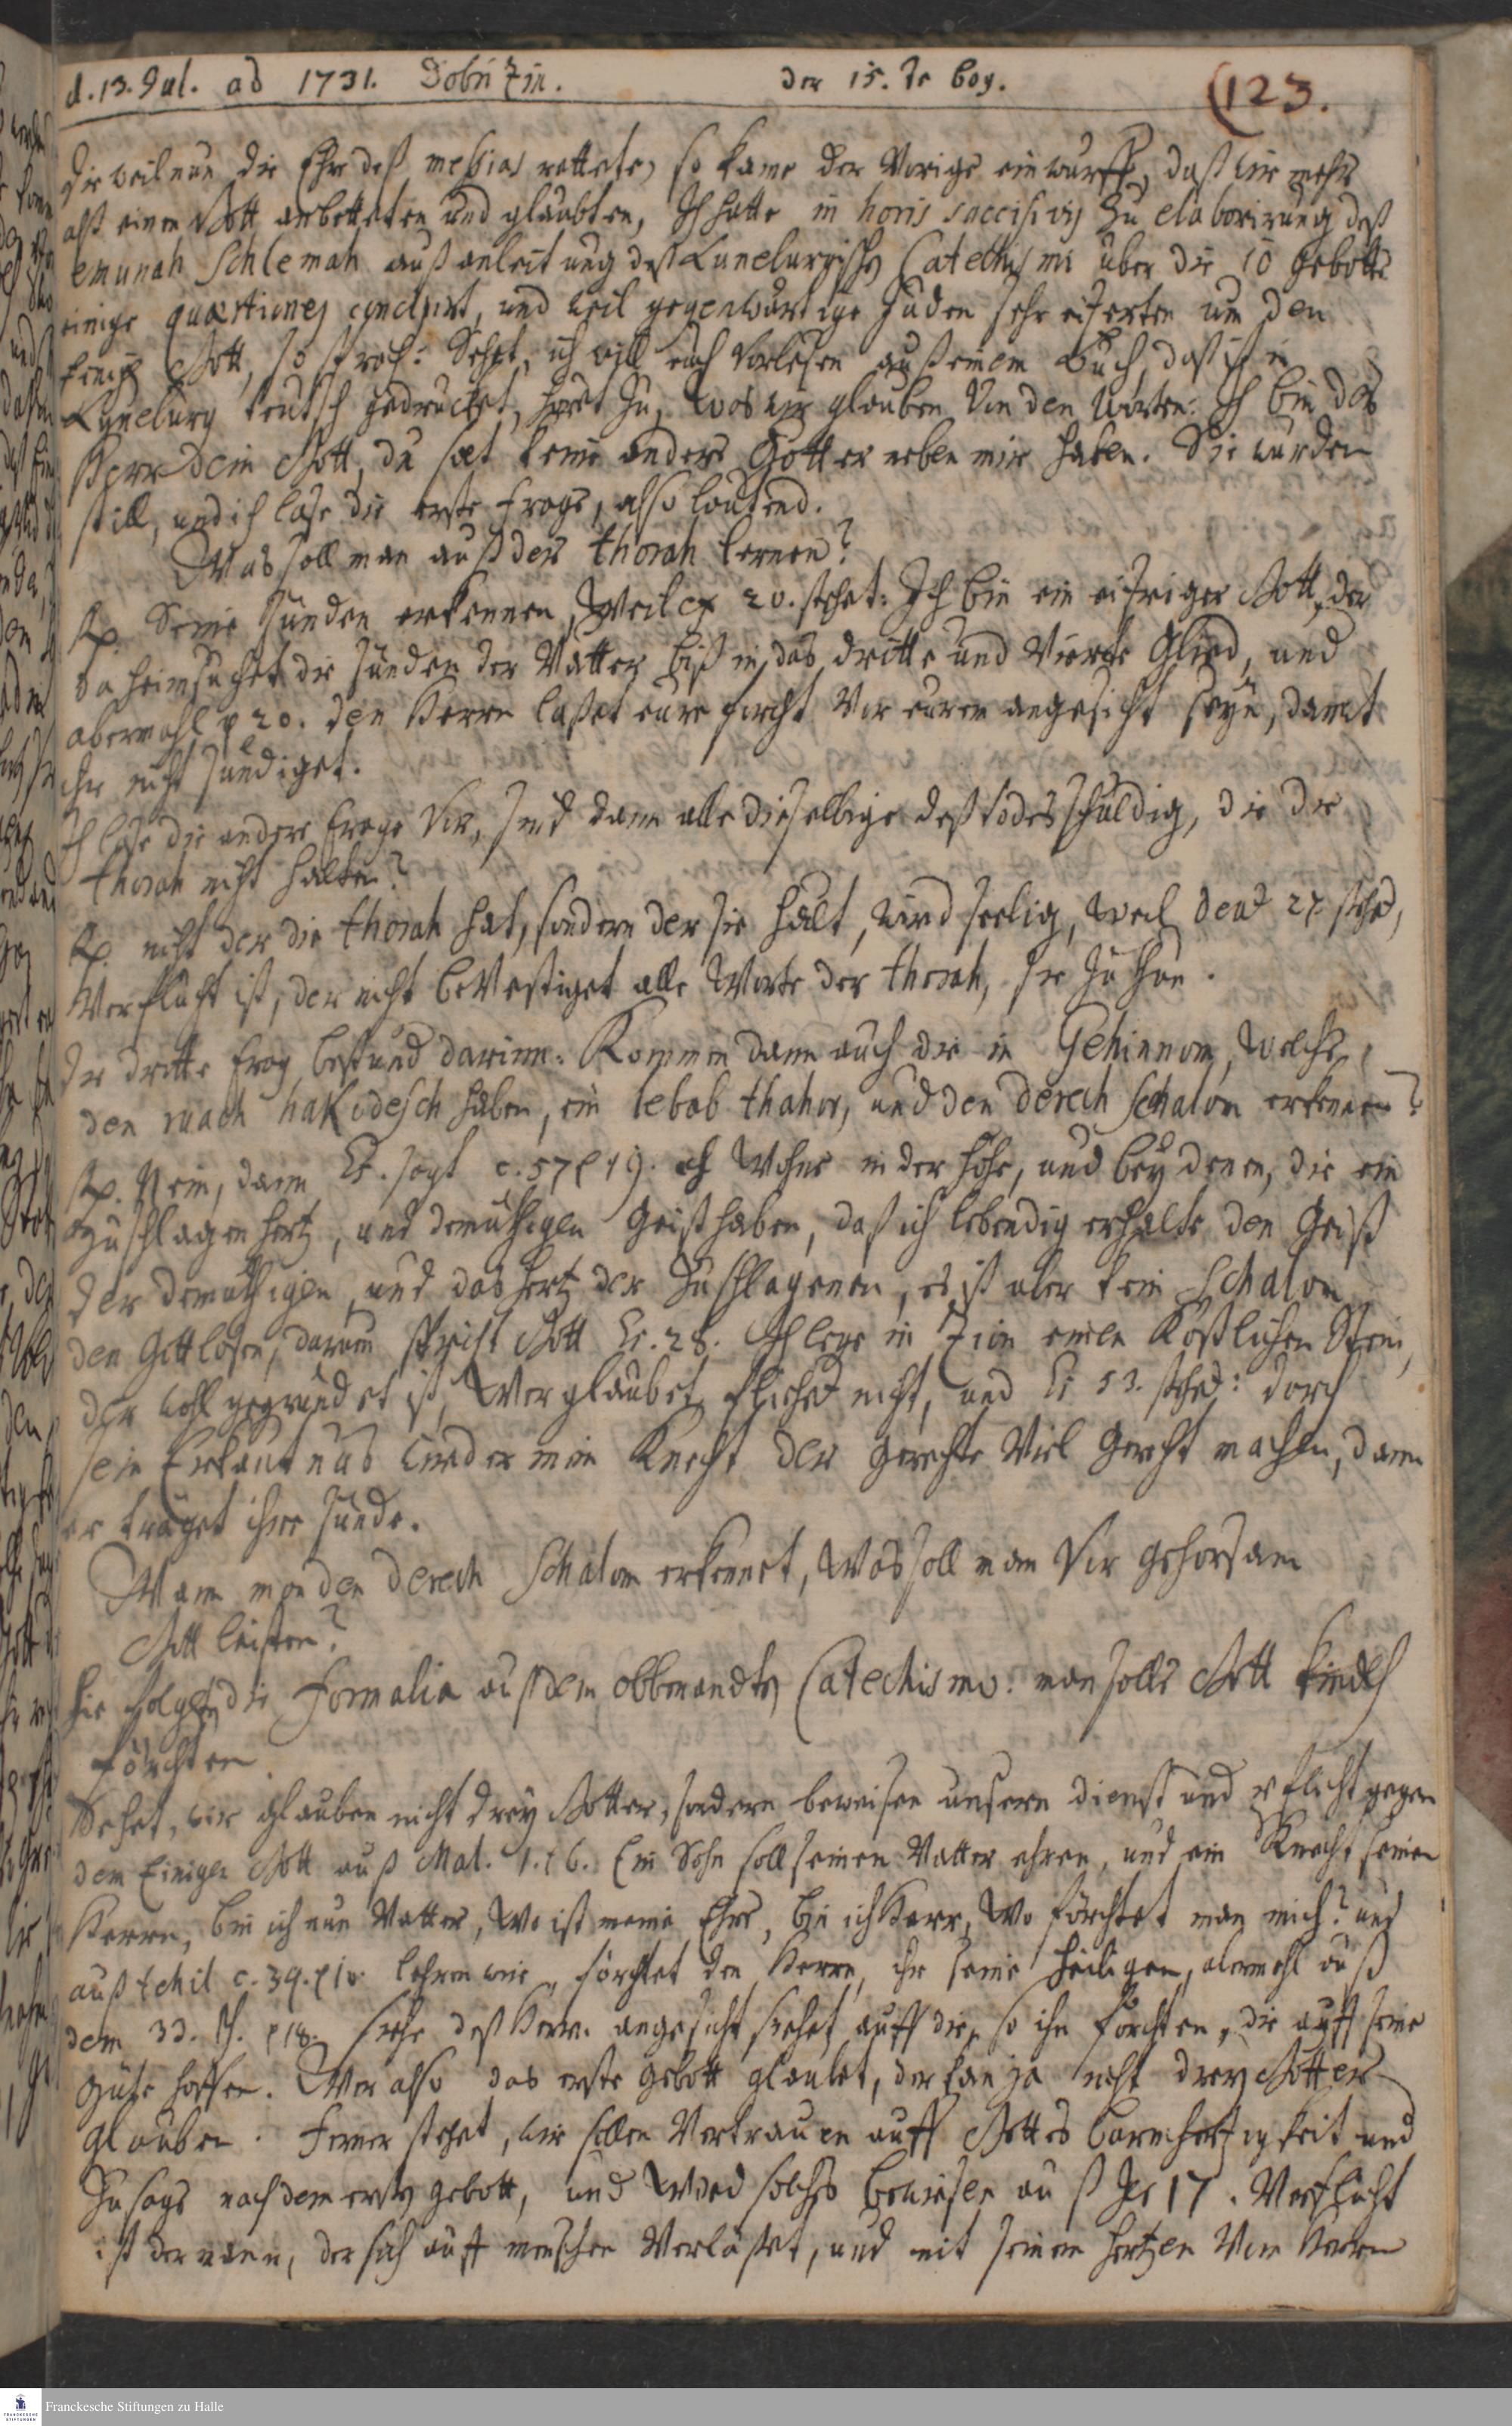 d. 13. Jul. ad 1731. Dobrizin. der 15.te bog. (123.
Die weil nun die Ehre deß messias rettete, so kame der Vorige einwurff, daß wir mehr
alß einen Gott anbetteten und glaubten, Ich hatte in horis succisivis zu elaborirung deß
emunah Schlemah auß anleitung deß Lunelurgischen Catechismi über die 10 gebotte
einige quæstiones concipirt, und weil gegenwärtige Juden sehr eiferten um den
einig Gott, so sprach: Sehet, ich will euch Vorlesen auß einem Buch, daß ist in
Lyneburg teutsch gedrucket, höret zu, was wir glauben Von den Worten: Ich bin der
Herr dein Gott, du solt keine andere Götter neben mir haben. Sie wurden
still, und ich lase die erste frage, also lautend.
Was soll man auß der thorah lernen?
Rp. Seine Sünden erkennen, Weil ex 20. stehet: Ich bin ein eifriger Gott, der
da heimsuchet die Sünden der Vätter biß in das dritte und Vierte Glied, und
abermahl 20. den Herrn laßet eure forcht Vor eurem angesicht seyn, damit
ihr nicht sündiget.
Ich lase die andere frage Vor, sind dann alle dieselbige deß todes schuldig, die die
thorah nicht halten?
Rp. nicht der die thorah hat, sondern der sie hält, wird seelig, weil deut 27 stehet,
Verflucht ist, der nicht beVestiget alle Worte der thorah, sie zu thun.
Die dritte frag bestund darinn: Kommen dann auch die in Gehinnom, welche
den ruach haKodesch haben, ein lebab thahor, und den derech schalom erkennen?
Rp. Nein, dann Es. sagt c. 57 19. ich Wohne in der höhe, und bey denen, die ein
zuschlagen hertz, und demüthigen Geist haben, daß ich lebendig erhalte den Geist
der demüthigen, und das hertz der zuschlagenen, es ist aber kein schalom
den Gottlosen, darum spricht Gott Es. 28. Ich lege in Zion einen Kostlichen Stein,
der wohl gegründet ist, Wer glaubet fliehet nicht, und Es 53. stehet: durch
sein Erkantnus wird er mein Knecht der gerechte Viel Gerecht machen, dann
er träget ihre Sünde.
Wann man den derech Schalom erkennet, Was soll man Vor gehorsam
Gott leisten?
hie folgen die Formalia auß dem obbenandten Catechismo: man solle Gott kindlich
förchten
Sehet, wir glauben nicht drey Götter, sondern beweisen unsern dienst und pflicht gegen
dem Einigen Gott auß Mal. 1. 6. Ein Sohn soll seinen Vatter ehren, und ein Knecht seinen
Herrn, bin ich nun Vatter, Wo ist meine Ehre, bin ich Herr, Wo förchtet man mich? und
auß tehil c. 34. 10. lehren wir, förchtet den Herrn, ihr seine heiligen, abermahl auß
dem 33. Ps. 18. siehe deß Herrn angesicht siehet auff die, so ihn förchten, die auff seine
Güte hoffen. Wer also das erste gebott glaubet, der kan ja nicht drey Götter
glauben. ferner stehet, wir sollen Vertrauen auff Gottes barmhertzigkeit und
zusage nach dem ersten gebott, und wird solches bewiesen auß Jer 17. Verflucht
ist der mann, der sich auff menschen Verläßet, und mit seinem hertzen Vom Herrn
Franckesche Stiftungen zu Halle